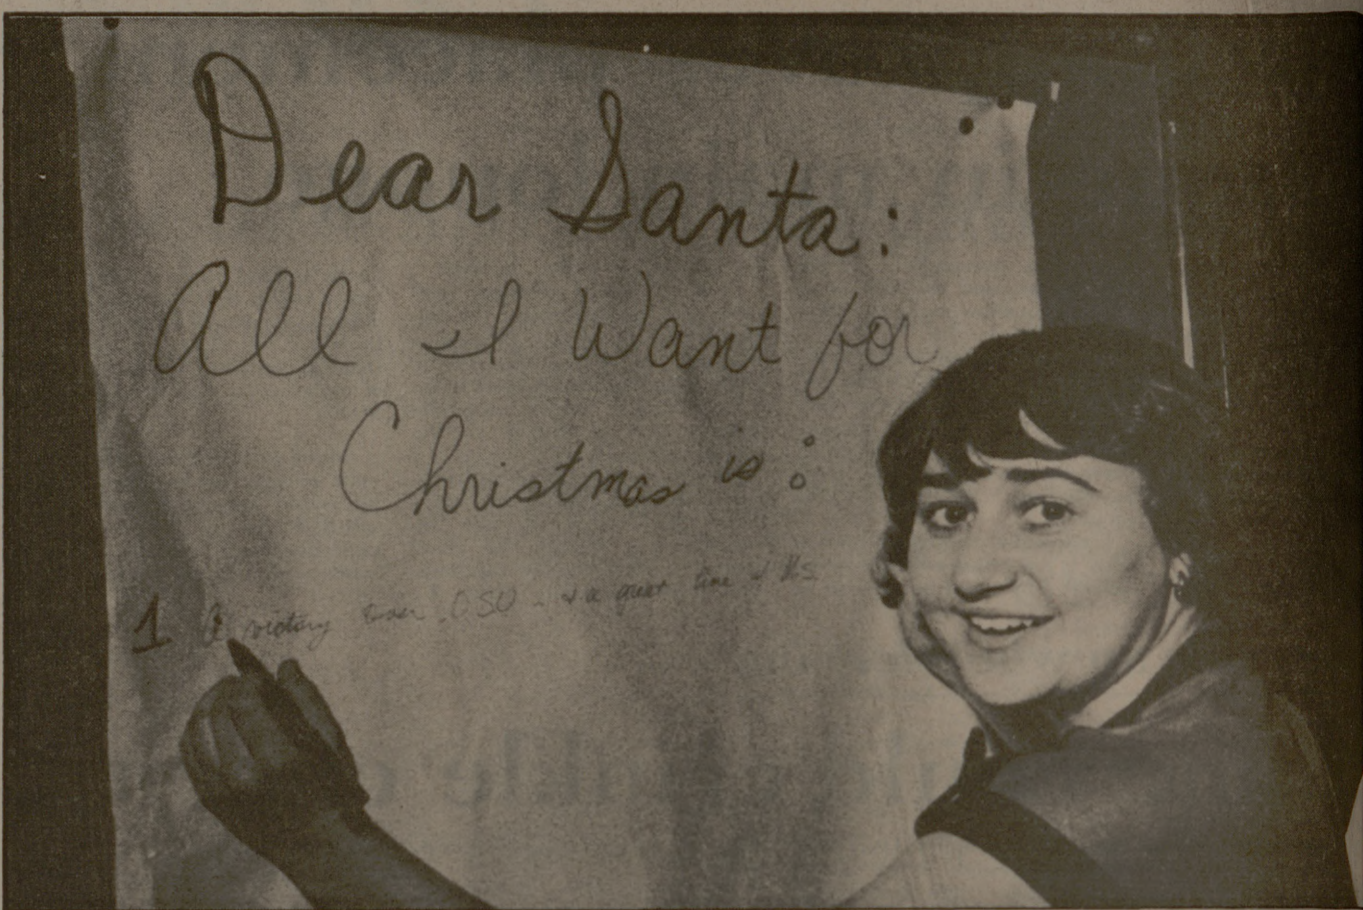 Dear Santa:
All I Want for
Christmas is:
1 A victory over OSU - & a great time